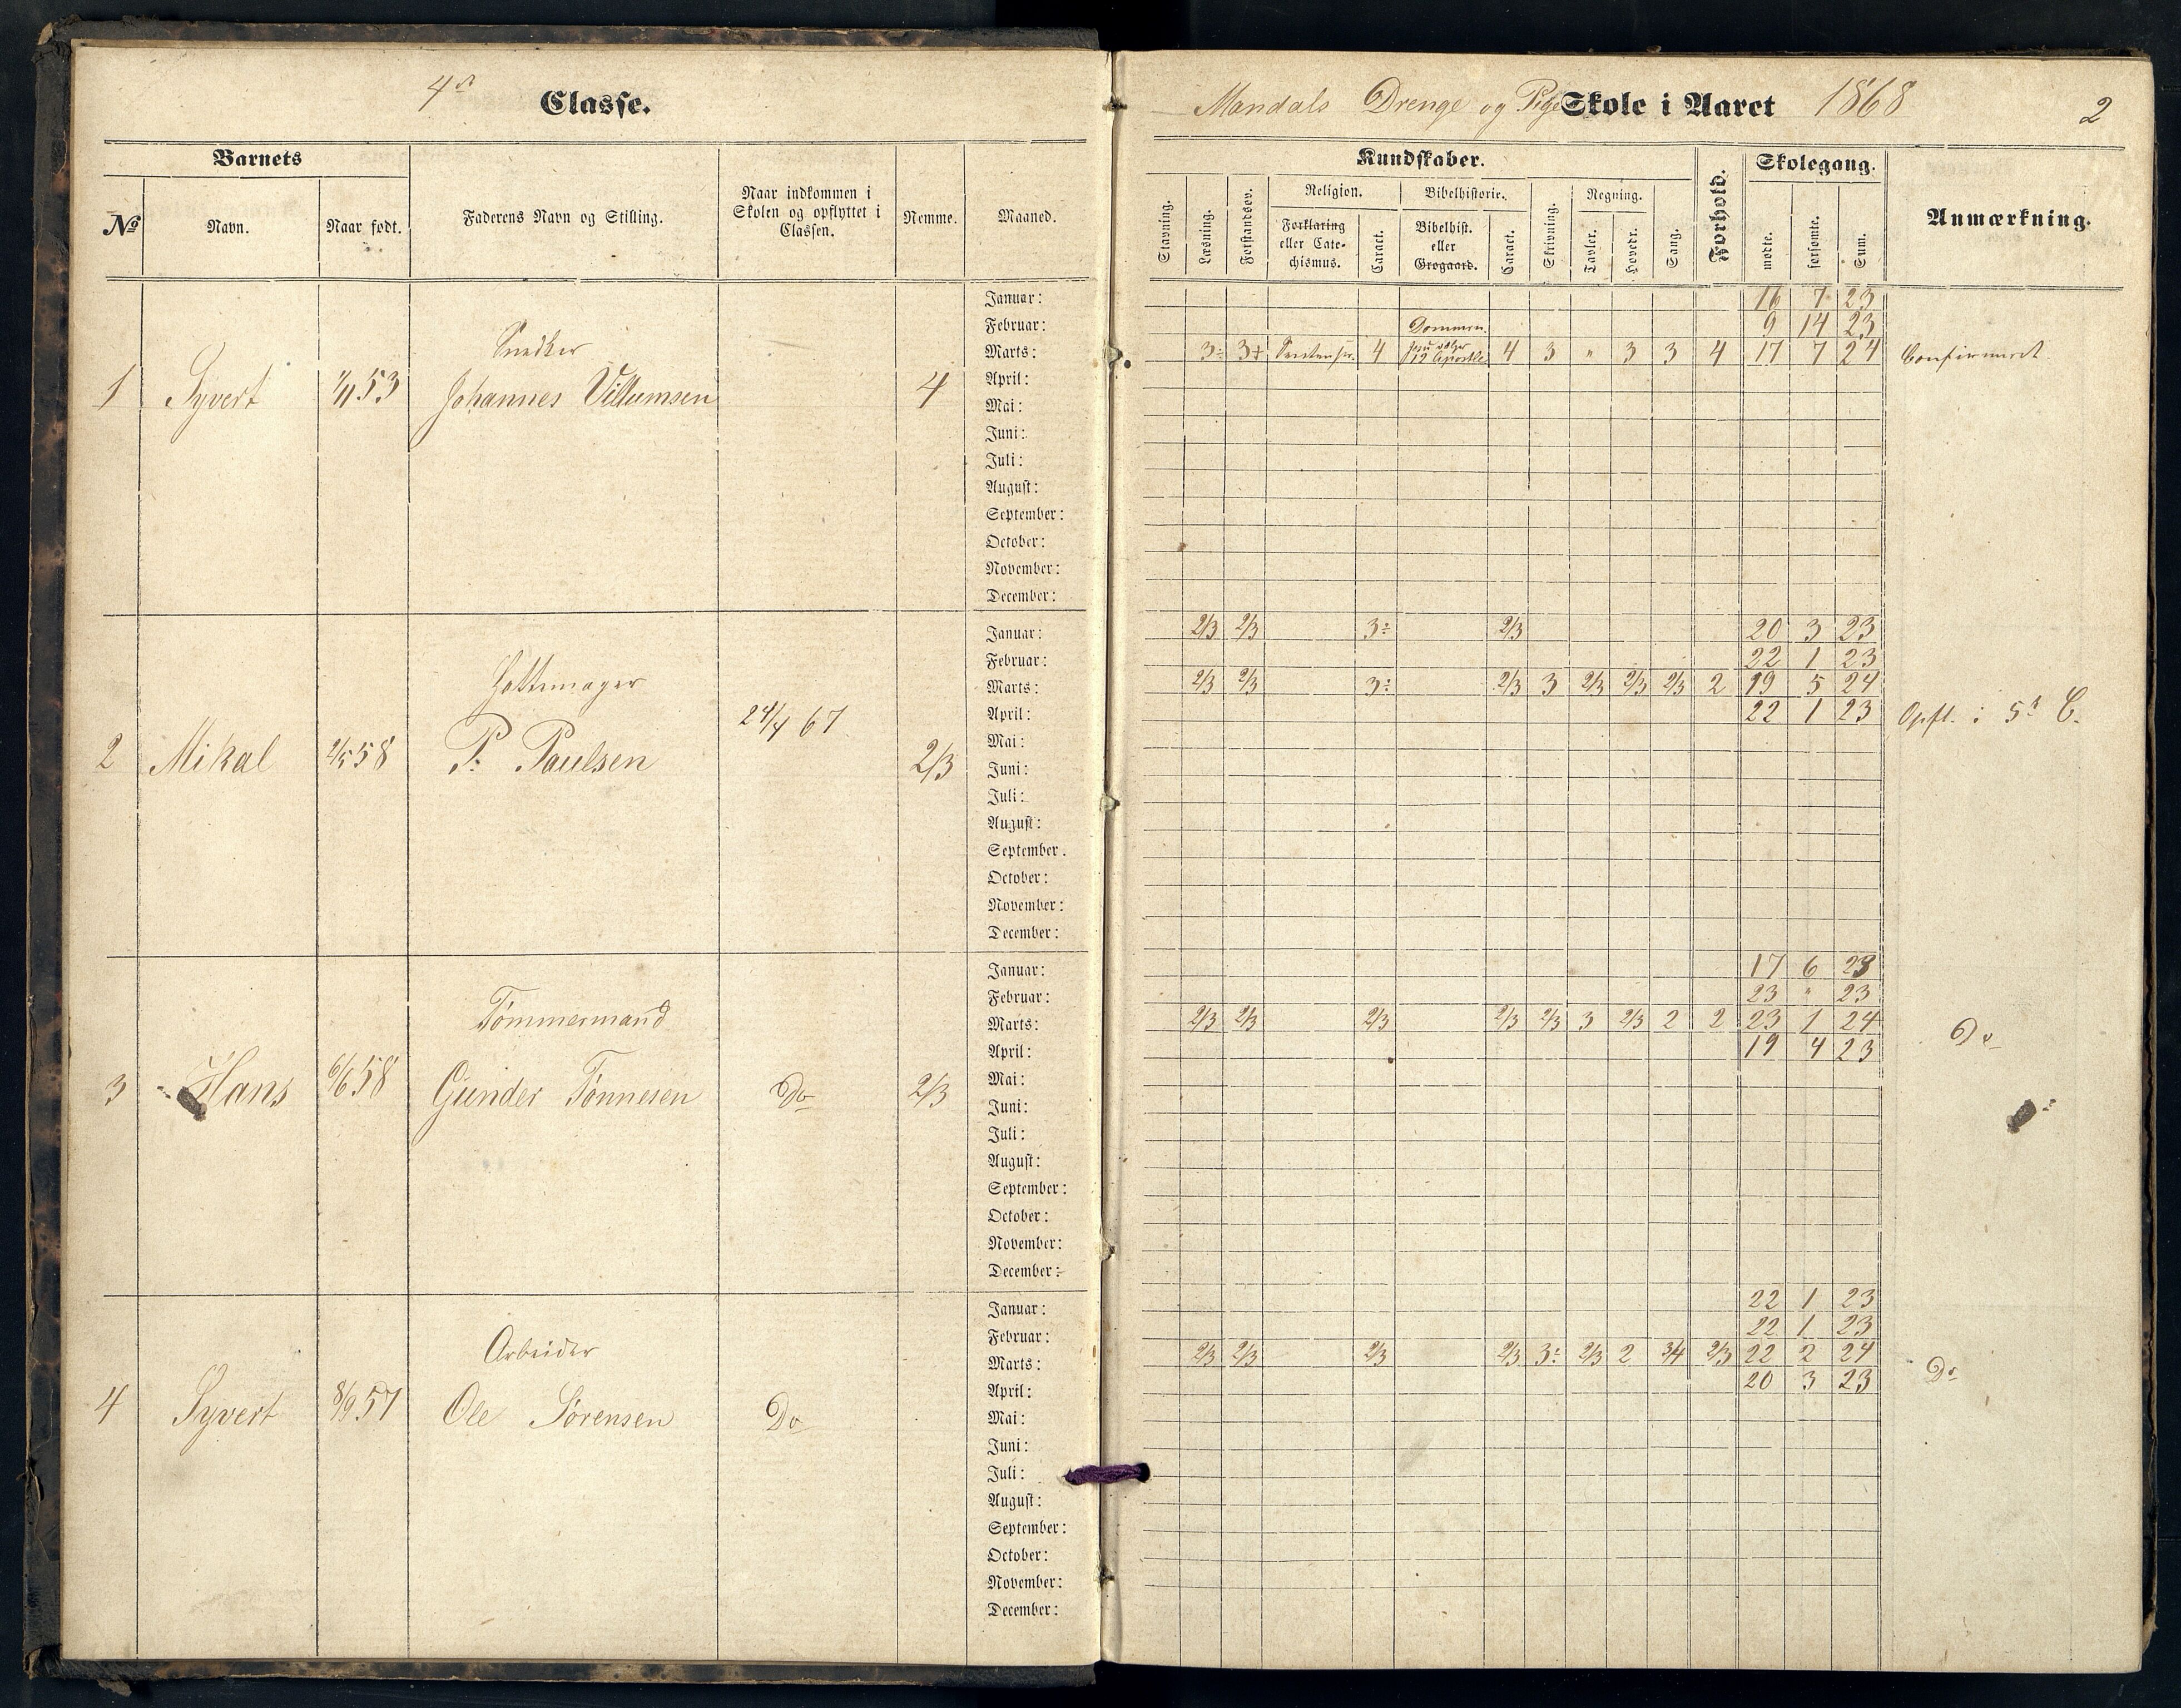 4de Classe.
Mandals Drenge og Pige Skole i Aaret 1868
2
Barnets
№
Navn.
Naar født.
Faderens Navn og Stilling.
Naar indkommen i
Skolen og opflyttet i
Classen.
Nemme.
Maaned.
Kundskaber.
Stavning.
Læsning.
Forstandsøv.
Religion.
Forklaring
eller Cate-
chismus.
Caract.
Bibelhistorie.
Bibelhist.
eller
Grogaard.
Caract.
Skrivning.
Regning.
Tavler.
Hovedr.
Sang.
Forhold.
Skolegang.
mødte.
forsømte.
Sum.
Anmærkning.
Januar: 16 7 23
Februar: 9 14 23
Snedker
Dommen.
Marts: 3÷ 3+ 4 12 Apostle 4 3 " 3 3 4 17 7 24 Confirmeret.
1 Syvert 1/11 53 Johannes Villumsen 4
April:
Mai:
Juni:
Juli:
August:
September:
October:
November:
December:
Januar: 2/3 2/3 3÷ 2/3 20 3 23
Februar: 22 1 23
Hattemager
Marts: 2/3 2/3 3÷ 2/3 3 2/3 2/3 2/3 2 19 5 24
24/4 67 April: 22 1 23 Opfl. i 5te C.
2 Mikal 2/5 58 P. Paulsen 2/3
Mai:
Juni:
Juli:
August:
September.
October:
November:
December:
Januar: 17 6 23
Februar: 23 " 23
Tømmermand
Marts: 2/3 2/3 2/3 2/3 2/3 3 2/3 2 2 23 1 24 Do
April: 19 4 23
3 Hans 6/6 58 Gunder Tønnesen Do 2/3
Mai:
Juni:
Juli:
August:
September:
October:
November:
December:
Januar: 22 1 23
Februar: 22 1 23
Arbeider
Marts: 2/3 2/3 2/3 2/3 3÷ 2/3 2 3/4 2/3 22 2 24 Do
April: 20 3 23
4 Syvert 8/9 57 Ole Sørensen Do
Mai:
Juni:
Juli:
August:
September:
October:
November:
December: